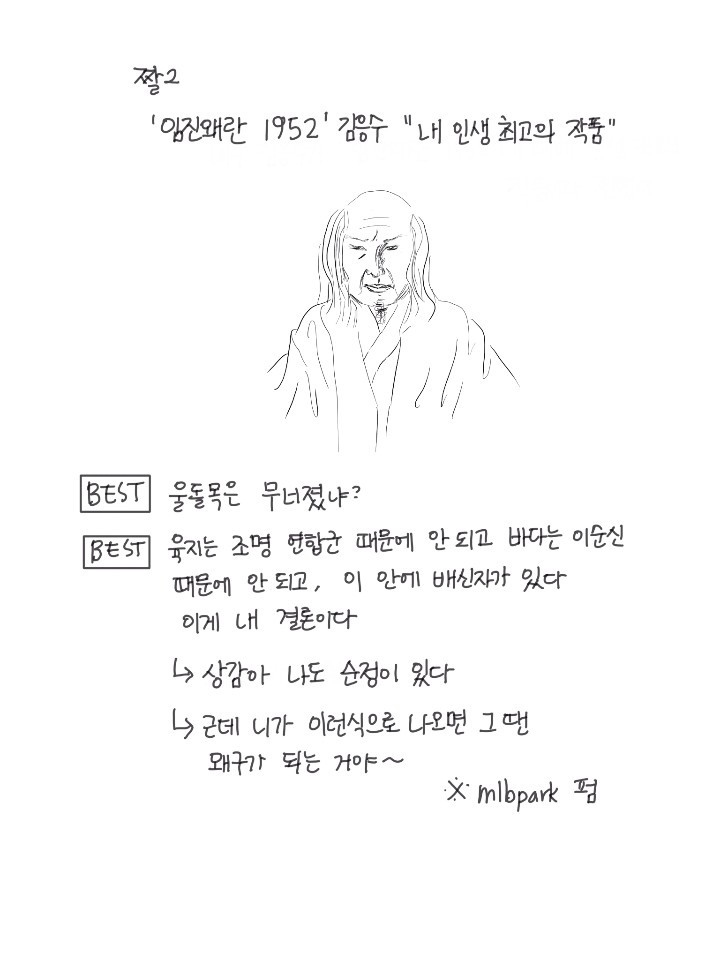 짤2
'임진왜란 1952' 김응수 "내 인생 최고의 작품"
BEST 울돌목은 무너졌냐?
BEST 육지는 조명 연합군 때문에 안 되고 바다는 이순신
때문에 안 되고, 이 안에 배신자가 있다
이게 내 결론이다
↳ 상감아 나도 순정이 있다
↳ 근데 니가 이런식으로 나오면 그 땐
왜구가 되는 거야~
※ mlbpark 펌